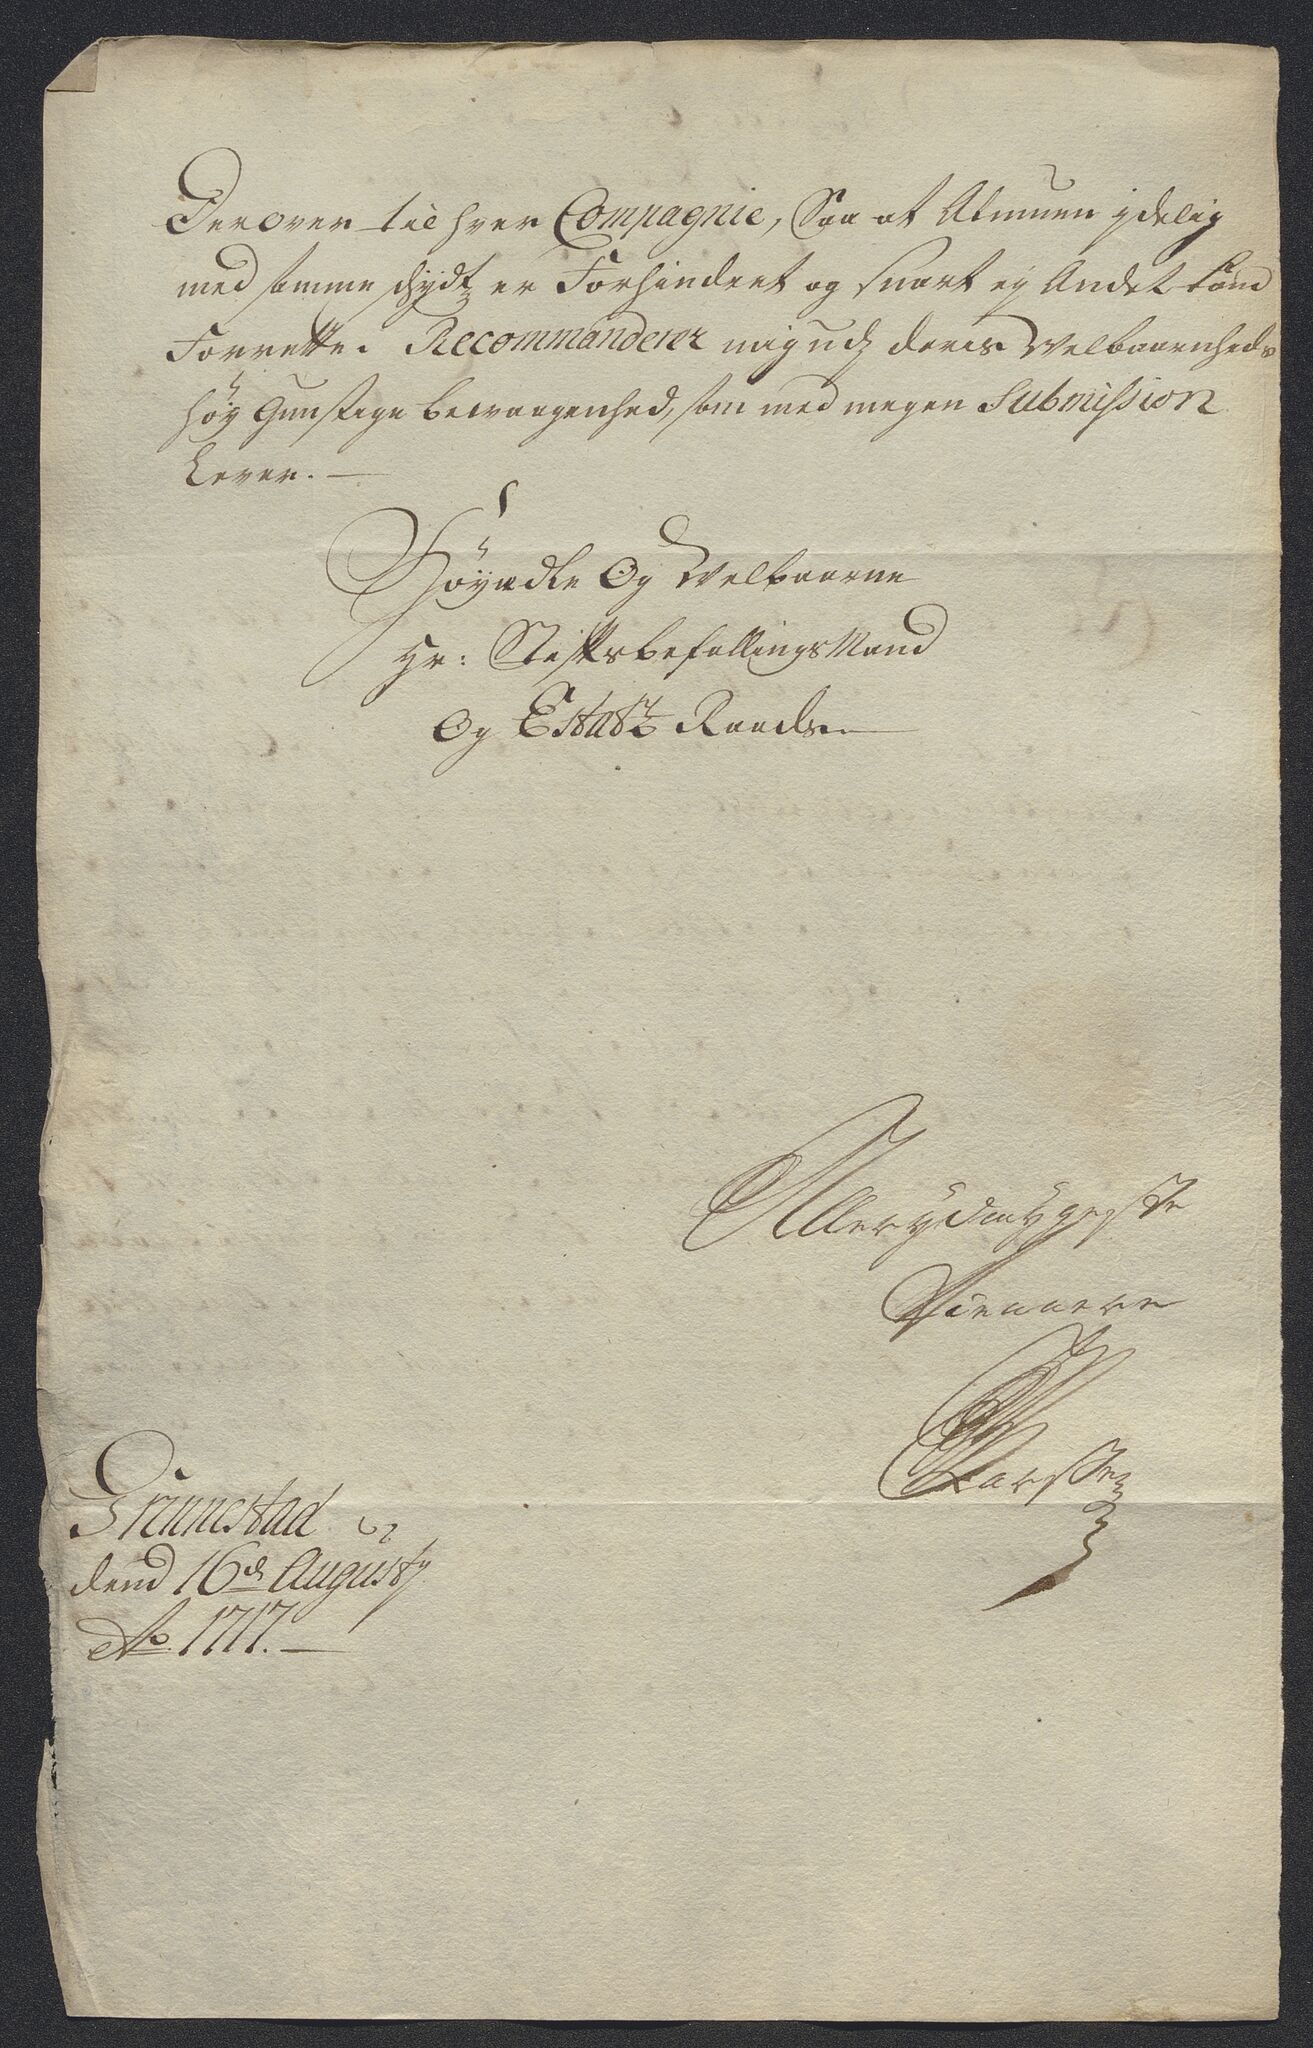 Derover til hver Compagnie, Saa at Almuen ydelig
med samme skydtz er Forhindret og snart ej Andet kand
Forrette. Recommanderer mig udj deris Welbaarenheds
høy Gunstige bevaagenhed, som med megen Submission
Lever. —
Høyædle Og Welbaarne
Hr: StiftsbefallingsMand
Og Estatz Raads —
Allerydmygeste
Tiennere
Karsten
Grimestad
dend 16de Augustj
Ao. 1717. —